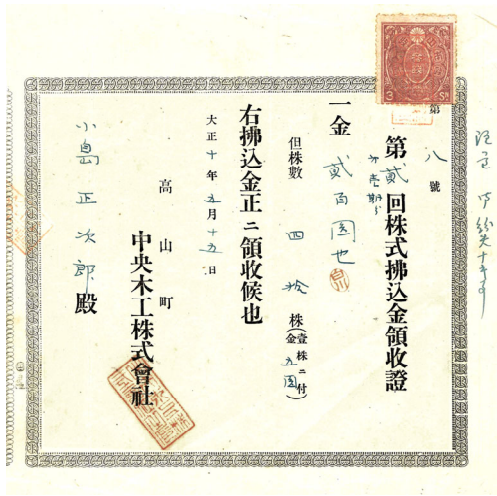 第八號
第貳回株式拂込金領收證
一金貳百圓也
但株數四拾株(壹株ニ付金五圓)
右拂込金正ニ領收候也
大正十年五月十五日
高山町
中央木工株式會社
小島正次郎殿
3 Sn